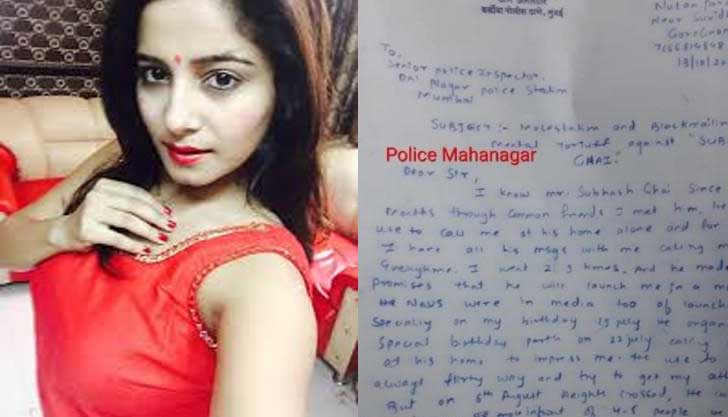 बर्सोवा पोलीस ठाणे, मुंबई
To,
Senior police Inspector.
Nagar police Station
Mumbai
SUBJECT :- Molestation and Blackmailin
mental torture against "SUB
GHAI."
Police Mahanagar
Dear Sir,
I know mr. Subhash Ghai Since
months through Common friends I met him, he
use to call me at his home alone and for
I have all his msgs with me calling
Everytime. I went 2, 3 times. And he made
promises that he will launch me in a m
the News were in media too of launch
Specially on my birthday 19 july he organ
Special birthday party on 22 july calling
at his home to impress me. He use to
always flirty way and try to get my att
But on 6th August Heights Crossed, He
people